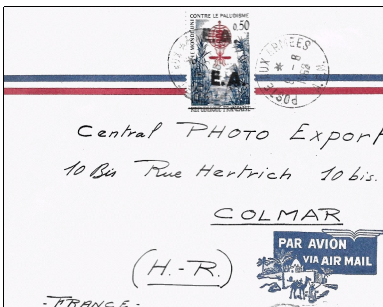 CONTRE LE PALUDISME
0,50
E.A.
E.A.
POSTE AUX ARMEES
Central PHOTO Export
10 Bis Rue Hertrich 10 bis.
COLMAR
PAR AVION
VIA AIR MAIL
(H.-R.)
- FRANCE -